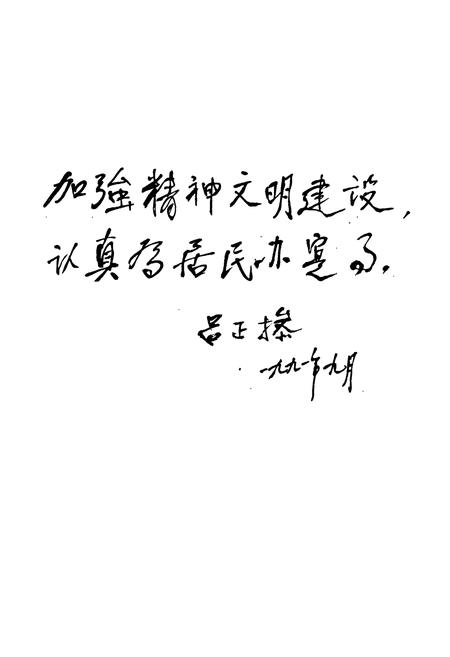 加強精神文明建设，
认真为居民办实事。
吕正操
一九九一年九月